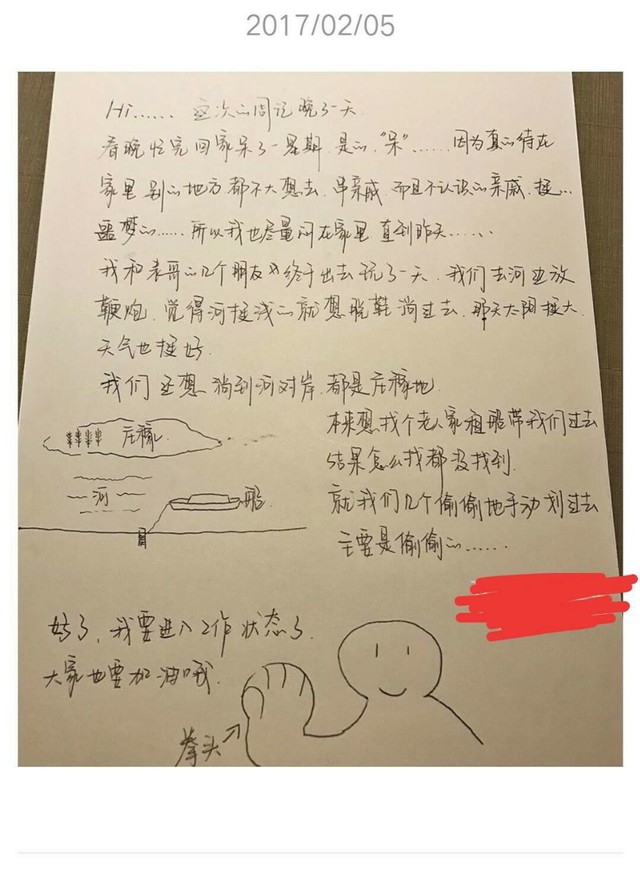 2017/02/05
Hi…… 这次的周记晚了一天
春晚忙完回家呆了一星期 是的. "呆"…… 因为真的待在
家里 别的地方都不大想去. 串亲戚. 而且不认识的亲戚. 挺…
噩梦的…… 所以我也尽量闷在家里 直到昨天……
我和表哥的几个朋友 终于出去玩了一天. 我们去河边放
鞭炮. 觉得河挺浅的就想脱鞋淌过去. 那天太阳挺大.
天气也挺好.
我们还想淌到河对岸. 都是庄稼地
本来想找个老人家租船带我们过去
结果怎么找都没找到.
就我们几个偷偷地手动划过去
主要是偷偷的……
庄稼
河
船
好了, 我要进入工作状态了.
大家也要加油哦.
拳头